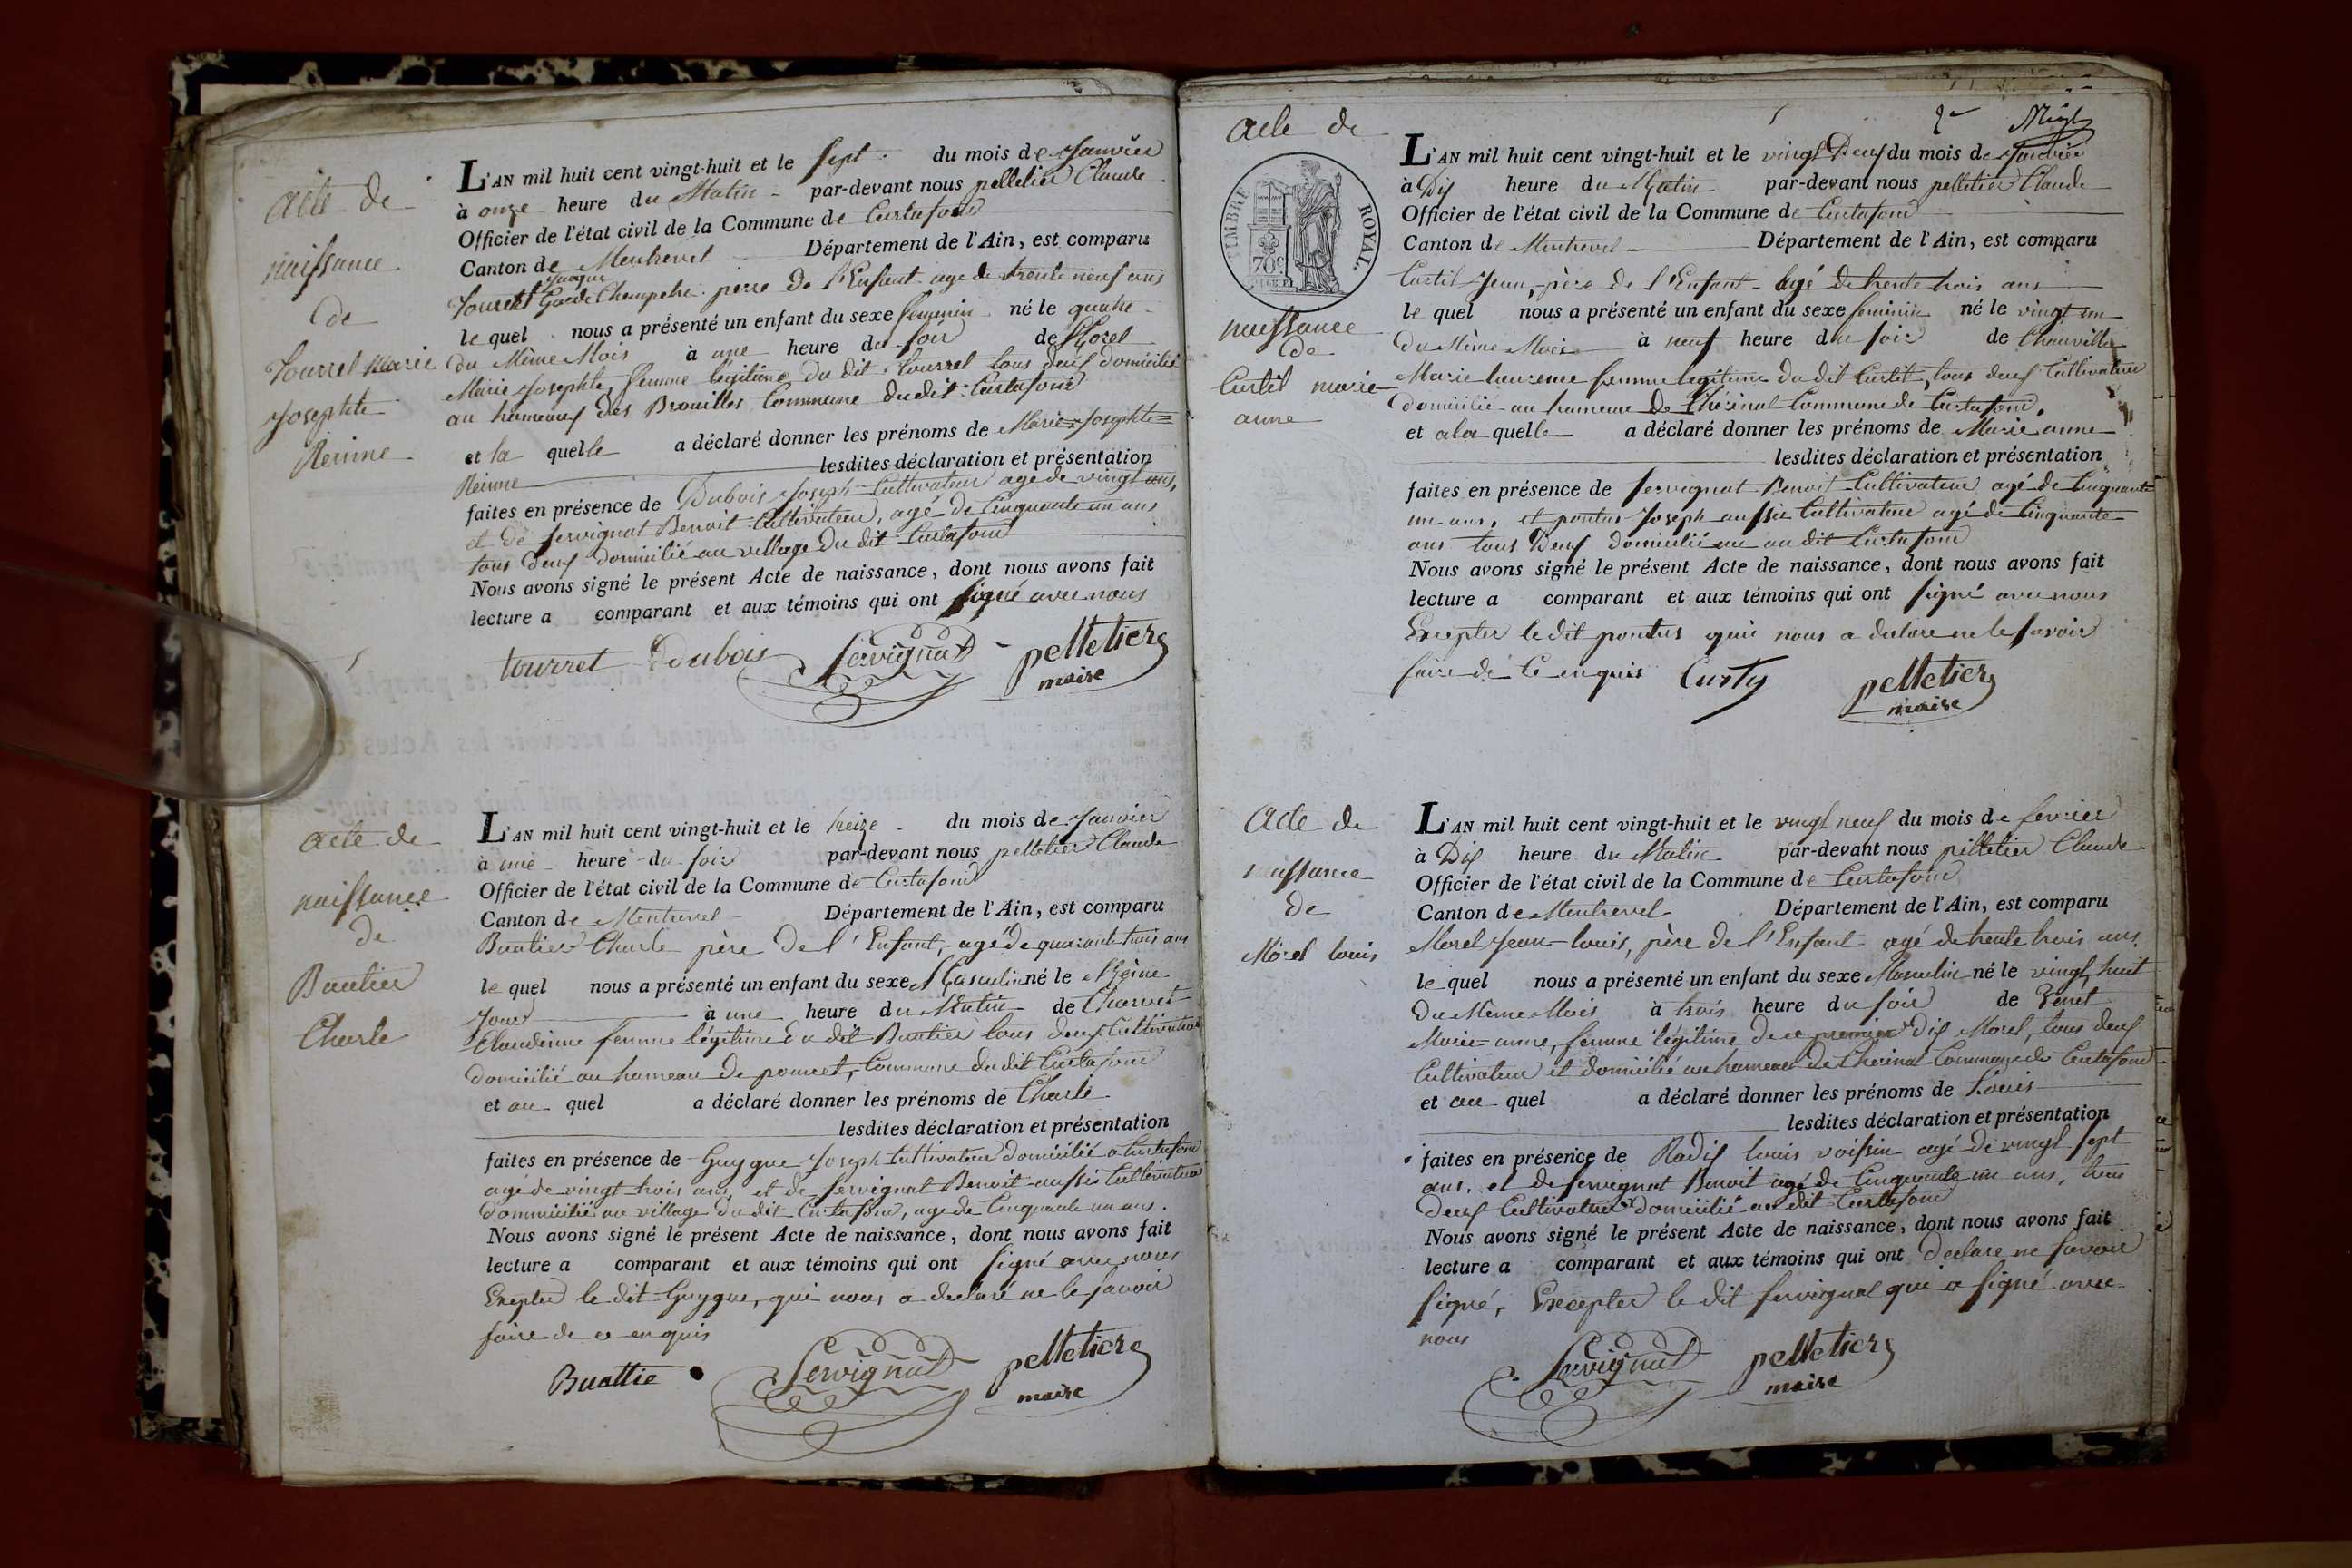 acte de
naissance
de
Tourret marie
Josephte
Reinne
L'AN mil huit cent vingt-huit et le sept du mois de Janvier
à onze heure du Matin par-devant nous pelletier Claude
Officier de l'état civil de la Commune de Curtafond
Canton de Montrevel Département de l'Ain, est comparu
Tourret Jacque Garde Champetre père de l'Enfant age de trente neuf ans
le quel nous a présenté un enfant du sexe feminin né le quatre
du Même Mois à une heure du soir de Morel
Marie Josephte, femme legitime du dit tourret tous deux domicilié
au hameaux des Brouilles Commune dudit Curtafond
et la quelle a déclaré donner les prénoms de Marie=Josephte=
Reinne lesdites déclaration et présentation
faites en présence de Dubois Joseph Cultivateur age de vingt ans,
et de servignat Benoit Cultivateur, agé de Cinquante un ans
tous deux domicilié au village du dit Curtafond
Nous avons signé le présent Acte de naissance, dont nous avons fait
lecture a comparant et aux témoins qui ont signé avec nous
tourret Dubois Servignat pelletier
maire
acte de
naissance
de
Buatier
Charle
L'AN mil huit cent vingt-huit et le treize du mois de Janvier
à une heure du soir par-devant nous pelletier Claude
Officier de l'état civil de la Commune de Curtafond
Canton de Montrevel Département de l'Ain, est comparu
Buatier Charle père de l'Enfant, agé de quarante trois ans
le quel nous a présenté un enfant du sexe Masculin né le Même
Jour à une heure du Matin de Charvet
Claudinne femme légitime du dit Buatier tous deux Cultivateur
domicilié au hameau de poncet, Commune du dit Curtafond
et au quel a déclaré donner les prénoms de Charle
lesdites déclaration et présentation
faites en présence de Guygue Joseph Cultivateur domicilié a Curtafond
agé de vingt trois ans, et de servignat Benoit aussi Cultivateur
dommicilié au village du dit Curtafond, age de Cinquante un ans.
Nous avons signé le présent Acte de naissance, dont nous avons fait
lecture a comparant et aux témoins qui ont signé avec nous
Excepter le dit Guygue, qui nous a declaré ne le savoir
faire de ce enquis
Buattie Servignat pelletier
maire
acte de
TIMBRE ROYAL.
70c
naissance
de
Curtil marie
anne
L'AN mil huit cent vingt-huit et le vingt Deux du mois de Janvier
à Dix heure du Matin par-devant nous pelletier Claude
Officier de l'état civil de la Commune de Curtafond
Canton de Montrevel Département de l'Ain, est comparu
Curtil Jean, père de l'Enfant agé de trente trois ans
le quel nous a présenté un enfant du sexe feminin né le vingt un
du Même Mois à neuf heure du soir de Chanvilla
Marie laurence femme legitime du dit Curtil, tous deux Cultivateur
domicilié au hameau de Chésinal Commune de Curtafond.
et a la quelle a déclaré donner les prénoms de Marie anne
lesdites déclaration et présentation
faites en présence de servignat Benoit Cultivateur agé de Cinquante
un ans. et pontus Joseph aussi Cultivateur agé de Cinquante
ans tous Deux domicilié au dit Curtafond
Nous avons signé le présent Acte de naissance, dont nous avons fait
lecture a comparant et aux témoins qui ont signé avec nous
Excepter le dit pontus qui nous a declare ne le savoir
faire de Ce enquis Curty pelletier
maire
acte de
naissance
de
Morel louis
L'AN mil huit cent vingt-huit et le vingt neuf du mois de fevrier
à Dix heure du Matin par-devant nous pelletier Claude
Officier de l'état civil de la Commune de Curtafond
Canton de Montrevel Département de l'Ain, est comparu
Morel Jean-louis, père de l'Enfant agé de trente trois ans.
le quel nous a présenté un enfant du sexe Masculin né le vingt huit
du Même Mois à trois heure du soir de Penet
Marie=anne, femme légitime de ce premier dix Morel, tous deux
Cultivateur et domicilié au hameau de Chesinal Commune de Curtafond
et au quel a déclaré donner les prénoms de Louis
lesdites déclaration et présentation
faites en présence de Radix louis voissin agé de vingt sept
ans. et de servignat Benoit agé de Cinquante un ans, tous
deux Cultivateur domicilié au dit Curtafond
Nous avons signé le présent Acte de naissance, dont nous avons fait
lecture a comparant et aux témoins qui ont declare ne savoir
signé, Excepter le dit servignat qui a signé avec
nous
Servignat pelletier
maire